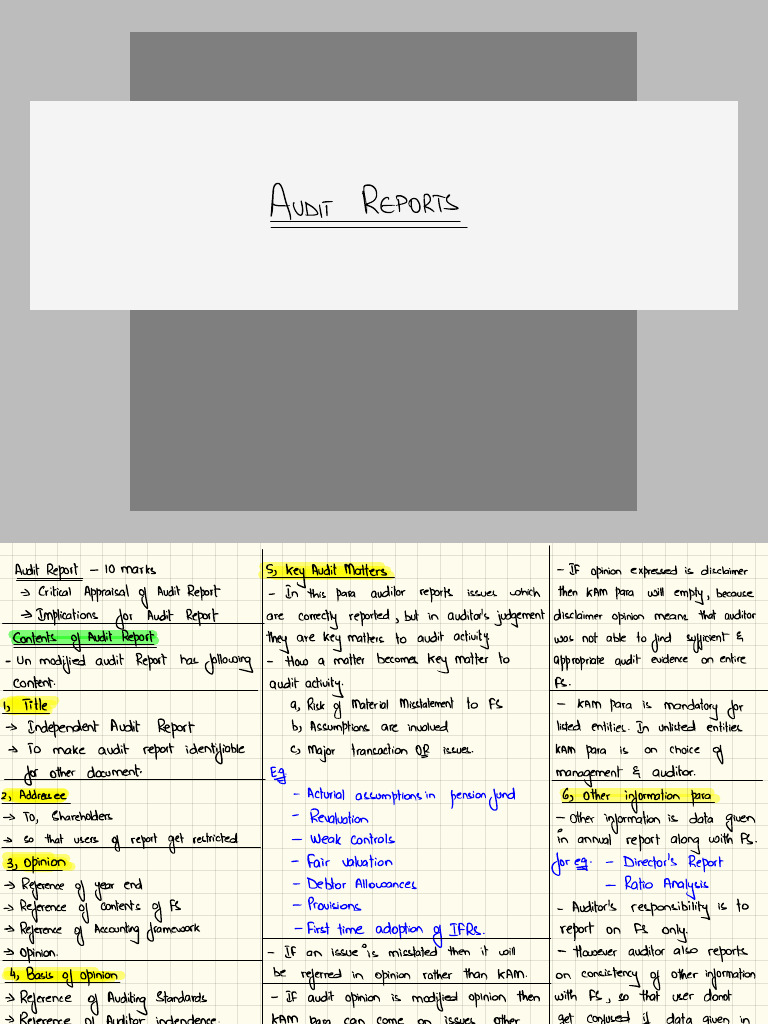 AUDIT REPORTS
Audit Report – 10 marks
→ Critical Appraisal of Audit Report
→ Implications for Audit Report
Contents of Audit Report
- Un modified audit Report has following
content.
1, Title
→ Independent Audit Report
→ To make audit report identifiable
for other document.
2, Addressee
→ To, Shareholders
→ so that users of report get restricted
3, Opinion
→ Reference of year end
→ Reference of contents of FS
→ Reference of Accounting framework
→ Opinion.
4, Basis of opinion
→ Reference of Auditing Standards
→ Reference of Auditor independence.
5, Key Audit Matters
- In this para auditor reports issues which
are correctly reported, but in auditor's judgement
they are key matters to audit activity
- How a matter becomes key matter to
audit activity.
a, Risk of Material Misstatement to FS
b, Assumptions are involved
c, Major transaction OR issues.
Eg
- Acturial assumptions in pension fund
- Revaluation
- Weak controls
- Fair valuation
- Debtor Allowances
- Provisions
- First time adoption of IFRs.
- If an issue is misstated then it will
be referred in opinion rather than KAM.
- If audit opinion is modified opinion then
KAM para can come on issues other
- If opinion expressed is disclaimer
then KAM para will empty, because
disclaimer opinion means that auditor
was not able to find sufficient &
appropriate audit evidence on entire
FS.
- KAM para is mandatory for
listed entities. In unlisted entities
KAM para is on choice of
management & auditor.
6, Other information para
- Other information is data given
in annual report along with FS.
for eg. - Director's Report
- Ratio Analysis
- Auditor's responsibility is to
report on FS only.
- However auditor also reports
on consistency of other information
with FS, so that user donot
get confused if data given in